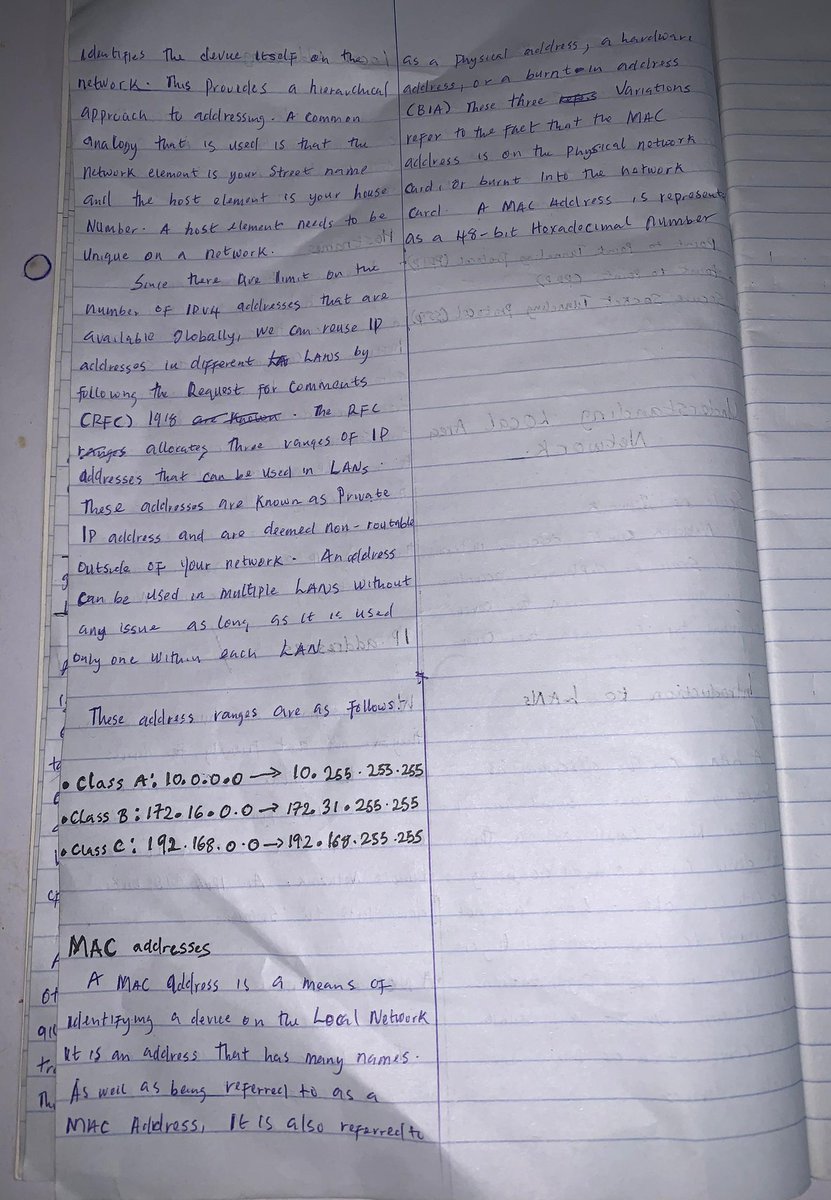 identifies the device itself on the
network. This provides a hierarchical
approach to addressing. A common
analogy that is used is that the
network element is your street name
and the host element is your house
Number. A host element needs to be
Unique on a network.
Since there are limit on the
number of IPV4 addresses that are
available Globally, we can reuse IP
addresses in different LANs by
following the Request for Comments
(RFC) 1918 are known. The RFC
ranges allocates three ranges of IP
addresses that can be used in LANs.
These addresses are known as Private
IP address and are deemed non-routable
outside of your network. An address
can be used in multiple LANs without
any issue as long as it is used
only one within each LAN
These address ranges are as follows:
• Class A: 10.0.0.0 → 10.255.255.255
• Class B: 172.16.0.0 → 172.31.255.255
• Class C: 192.168.0.0 → 192.168.255.255
MAC addresses
A MAC address is a means of
identifying a device on the Local Network
It is an address that has many names.
As well as being referred to as a
MAC Address, It is also referred to
as a Physical address, a hardware
address, or a burnt-in address
(BIA) These three Variations
refer to the fact that the MAC
address is on the Physical network
Card, or burnt into the network
Card. A MAC Address is represent
as a 48-bit Hexadecimal Number